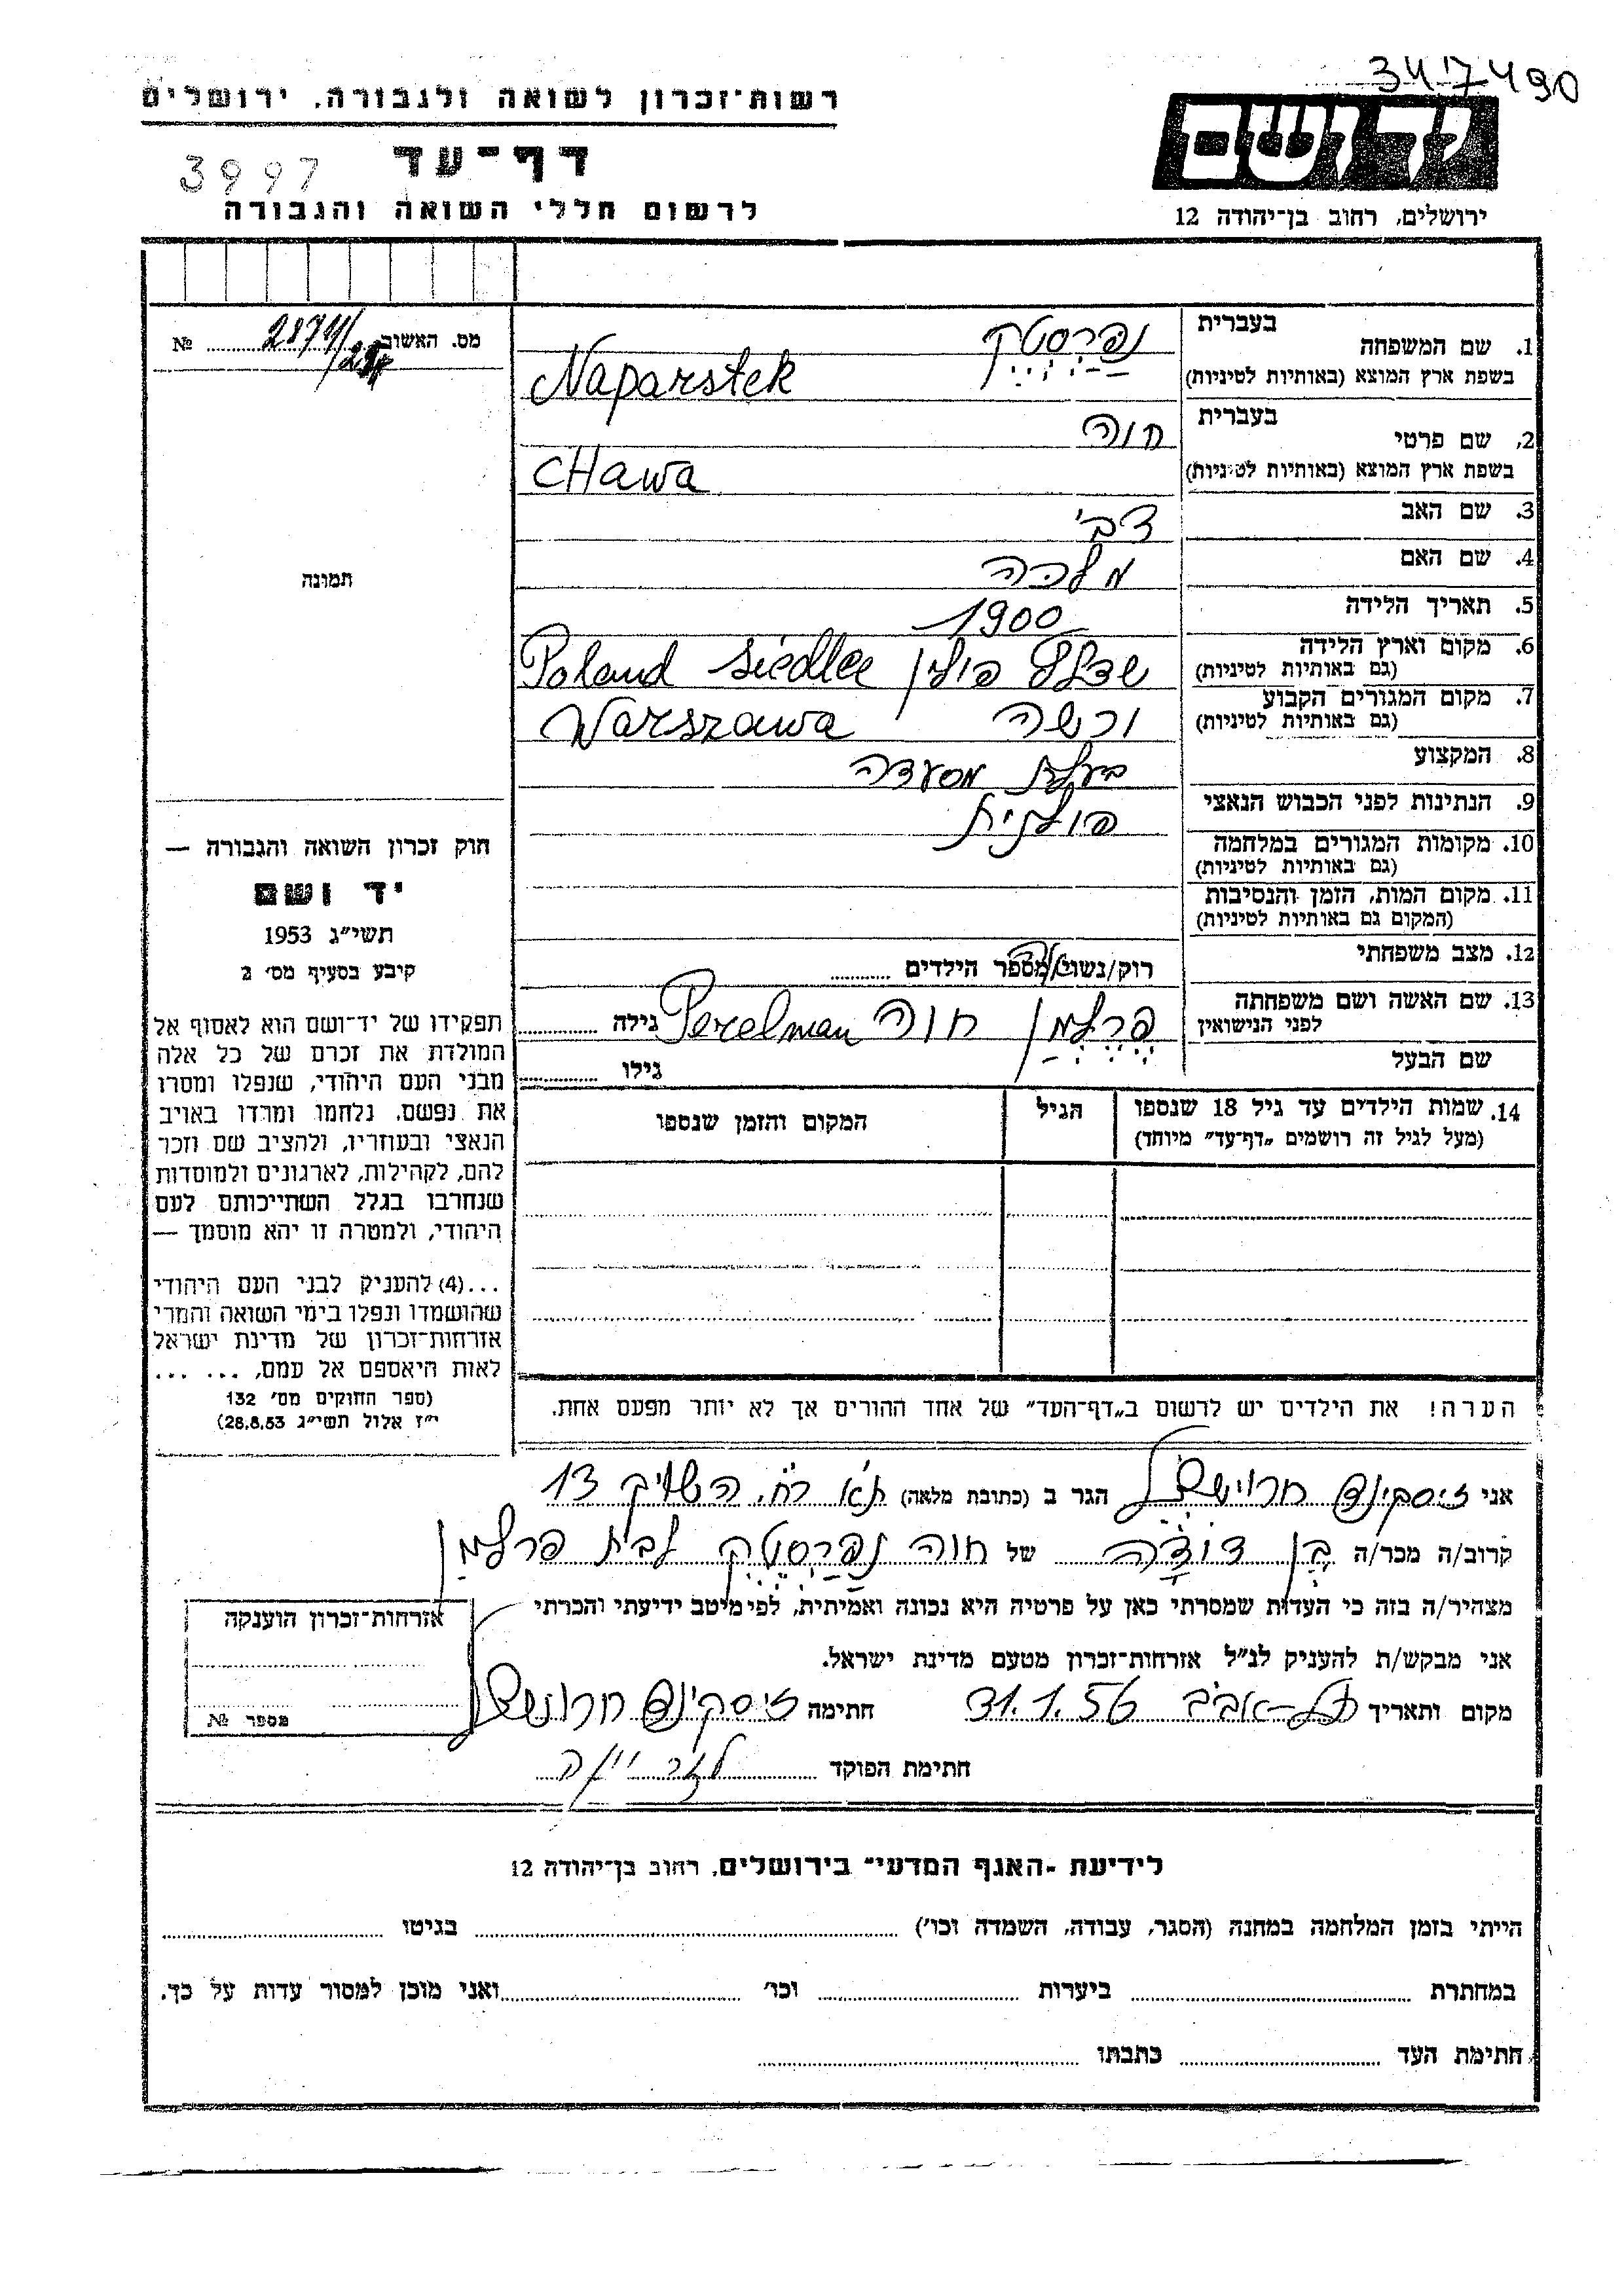 3417490
רשות־זכרון לשואה ולגבורה, ירושלים
יד ושם
דף־עד
3997
לרשום חללי השואה והגבורה
ירושלים, רחוב בן־יהודה 12
מס. האשוב № 2874/
1. שם המשפחה בעברית נַפַּרְסְטֶק
בשפת ארץ המוצא (באותיות לטיניות) Naparstek
2. שם פרטי בעברית חוה
בשפת ארץ המוצא (באותיות לטיניות) CHawa
3. שם האב צבי
4. שם האם מלכה
5. תאריך הלידה 1900
6. מקום וארץ הלידה (גם באותיות לטיניות) שדלץ פולין Poland Siedlce
7. מקום המגורים הקבוע (גם באותיות לטיניות) ורשה Warszawa
8. המקצוע בעלת מסעדה
9. הנתינות לפני הכבוש הנאצי פולנית
10. מקומות המגורים במלחמה (גם באותיות לטיניות)
11. מקום המות, הזמן והנסיבות (המקום גם באותיות לטיניות)
12. מצב משפחתי רוק/נשוי/מספר הילדים
13. שם האשה ושם משפחתה לפני הנישואין פֶּרֶלְמַן חוה Perelman גילה
שם הבעל גילו
14. שמות הילדים עד גיל 18 שנספו (מעל לגיל זה רושמים „דף־עד” מיוחד)
הגיל
המקום והזמן שנספו
הערה! את הילדים יש לרשום ב„דף־העד” של אחד ההורים אך לא יותר מפעם אחת.
תמונה
חוק זכרון השואה והגבורה —
יד ושם
תשי״ג 1953
קיבע בסעיף מס׳ 2
תפקידו של יד־ושם הוא לאסוף אל
המולדת את זכרם של כל אלה
מבני העם היהודי, שנפלו ומסרו
את נפשם, נלחמו ומרדו באויב
הנאצי ובעוזריו, ולהציב שם וזכר
להם, לקהילות, לארגונים ולמוסדות
שנחרבו בגלל השתייכותם לעם
היהודי, ולמטרה זו יהא מוסמך —
...(4) להעניק לבני העם היהודי
שהושמדו ונפלו בימי השואה והמרי
אזרחות־זכרון של מדינת ישראל
לאות היאספם אל עמם, ... ...
(ספר החוקים מס׳ 132
י״ז אלול תשי״ג 28.8.53)
אני זיסקינד הגר ב (כתובת מלאה) ת״א רח. 13
קרוב/ה מכר/ה בן דודה של חוה נַפַּרְסְטֶק לבית פרלמן
מצהיר/ה בזה כי העדות שמסרתי כאן על פרטיה היא נכונה ואמיתית, לפי מיטב ידיעתי והכרתי
אני מבקש/ת להעניק לנ״ל אזרחות־זכרון מטעם מדינת ישראל.
מקום ותאריך תל-אביב 31.1.56 חתימה זיסקינד
חתימת הפוקד
אזרחות־זכרון הוענקה
מספר №
לידיעת „האגף המדעי” בירושלים, רחוב בן־יהודה 12
הייתי בזמן המלחמה במחנה (הסגר, עבודה, השמדה וכו׳) בגיטו
במחתרת ביערות וכו׳ ואני מוכן למסור עדות על כך.
חתימת העד כתבתו